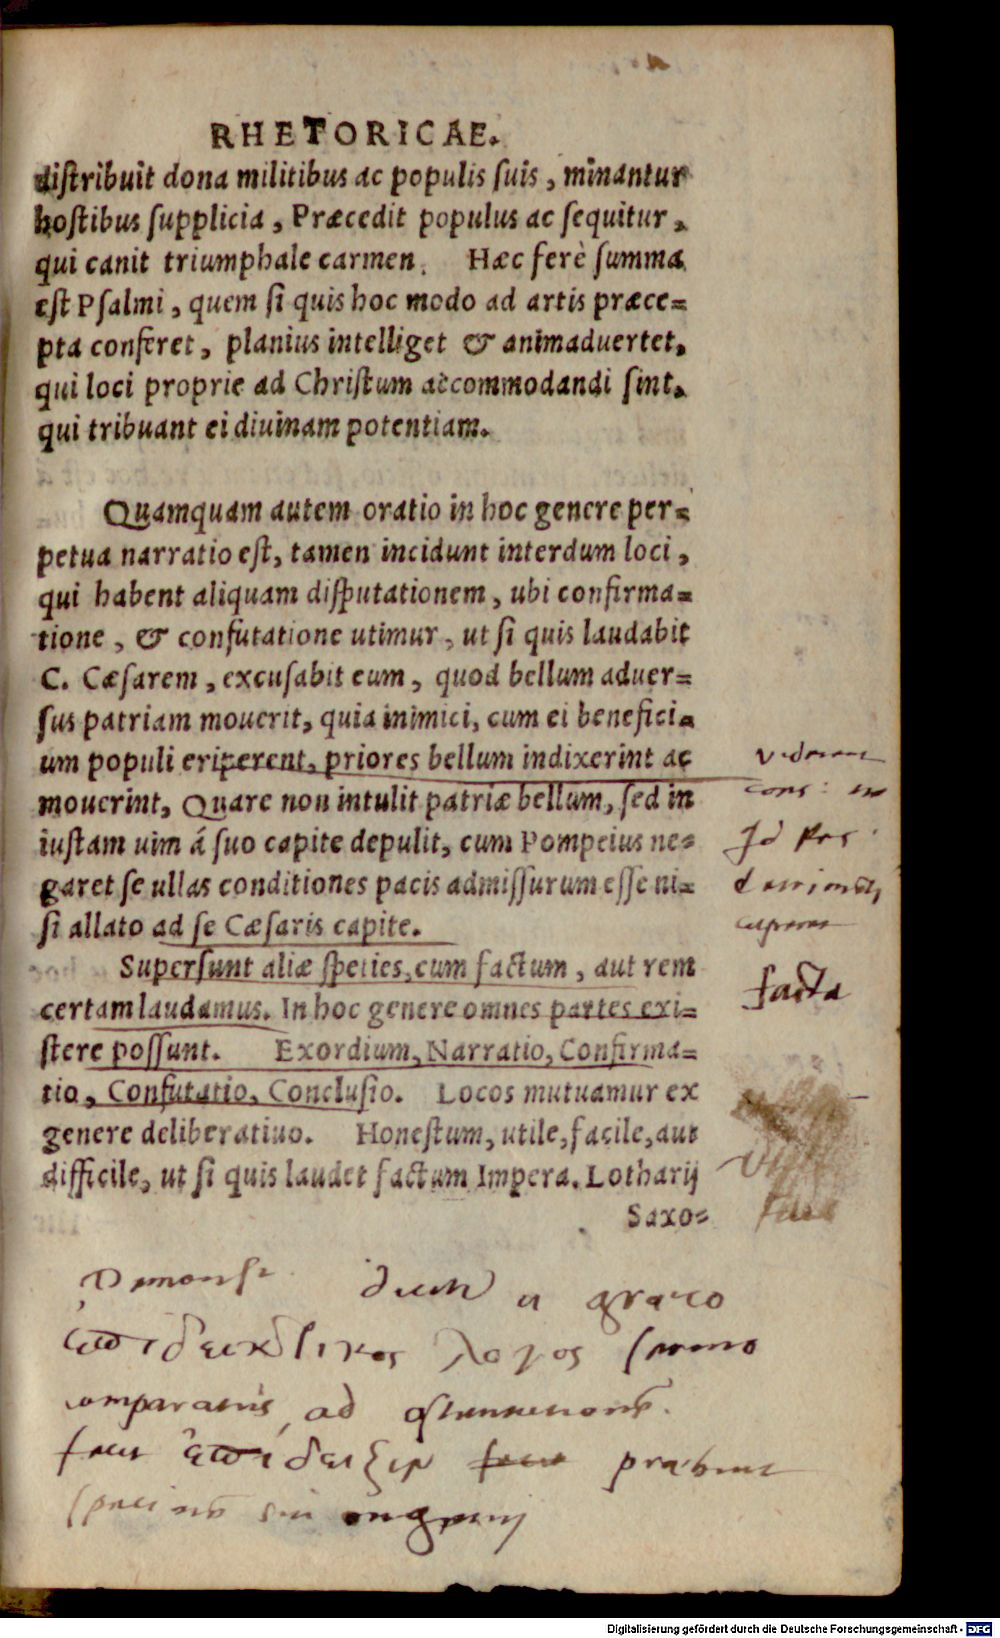 RHETORICAE.
distribuit dona militibus ac populis suis, minantur
hostibus supplicia, Præcedit populus ac sequitur,
qui canit triumphale carmen. Hæc ferè summa
est Psalmi, quem si quis hoc modo ad artis præce=
pta conferet, planius intelliget & animaduertet,
qui loci proprie ad Christum accommodandi sint,
qui tribuant ei diuinam potentiam.
Quamquam autem oratio in hoc genere per=
petua narratio est, tamen incidunt interdum loci,
qui habent aliquam disputationem, ubi confirma=
tione, & confutatione utimur, ut si quis laudabit
C. Cæsarem, excusabit eum, quod bellum aduer=
sus patriam mouerit, quia inimici, cum ei benefici=
um populi eriperent, priores bellum indixerint ac
mouerint, Quare non intulit patriæ bellum, sed in
iustam uim á suo capite depulit, cum Pompeius ne=
garet se ullas conditiones pacis admissurum esse ni=
si allato ad se Cæsaris capite.
Supersunt aliæ species, cum factum, aut rem
certam laudamus. In hoc genere omnes partes exi=
stere possunt. Exordium, Narratio, Confirma=
tio, Confutatio, Conclusio. Locos mutuamur ex
genere deliberatiuo. Honestum, utile, facile, aut
difficile, ut si quis laudet factum Impera. Lotharij
Saxo=
facta
a græco
λογος sermo
comparatus ad ostentationem.
ἐπίδειξιν præbent
specimen sui ingenij
Digitalisierung gefördert durch die Deutsche Forschungsgemeinschaft - DFG